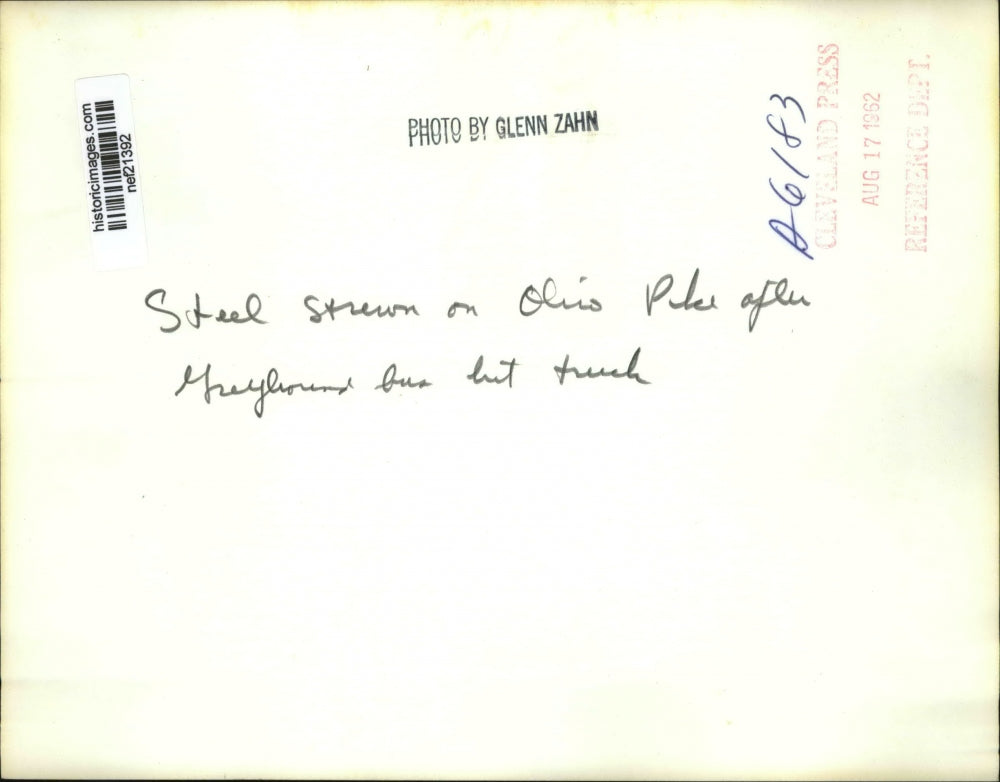 historicimages.com
nef21392
PHOTO BY GLENN ZAHN
A6183
CLEVELAND PRESS
AUG 17 1962
REFERENCE DEPT.
Steel strewn on Ohio Pike after
Greyhound bus hit truck